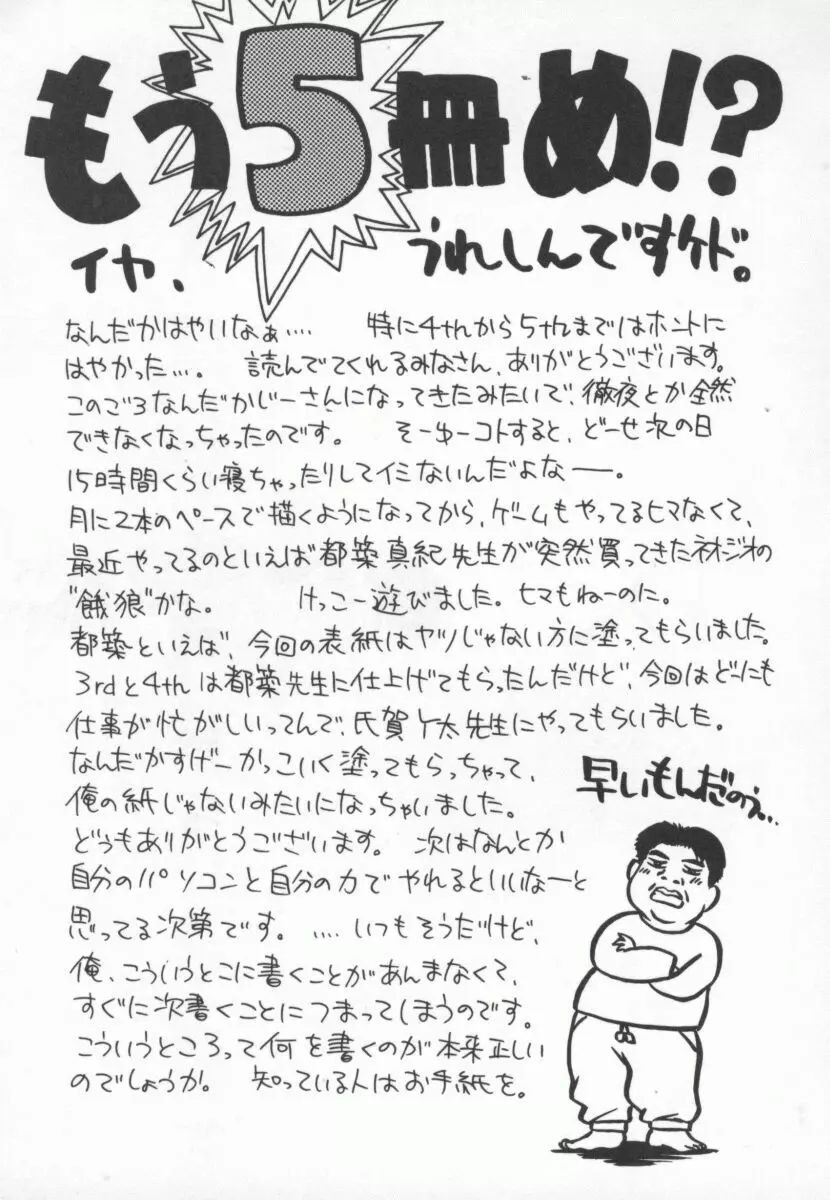 もう5冊め!?
イヤ、うれしんですケド。
なんだかはやいなぁ‥‥ 特に4thから5thまではホントに
はやかった‥‥。 読んでてくれるみなさん、ありがとうございます。
このごろなんだかじーさんになってきたみたいで、徹夜とか全然
できなくなっちゃったのです。 そーゆーコトすると、どーせ次の日
15時間くらい寝ちゃったりしてイミないんだよなー。
月に2本のペースで描くようになってから、ゲームもやってるヒマなくて、
最近やってるのといえば都築真紀先生が突然買ってきたネオジオの
"餓狼"かな。 けっこー遊びました。ヒマもねーのに。
都築といえば、今回の表紙はヤツじゃない方に塗ってもらいました。
3rdと4thは都築先生に仕上げてもらったんだけど、今回はどーにも
仕事が忙がしいってんで、氏賀Y太先生にやってもらいました。
なんだかすげーかっこいく塗ってもらっちゃって、
俺の紙じゃないみたいになっちゃいました。
どぅもありがとうございます。 次はなんとか
自分のパソコンと自分の力でやれるといいなーと
思ってる次第です。 ‥‥いつもそうだけど、
俺、こういうとこに書くことがあんまなくて、
すぐに次書くことにつまってしまうのです。
こういうところって何を書くのが本来正しい
のでしょうか。 知っている人はお手紙を。
早いもんだのぅ‥‥